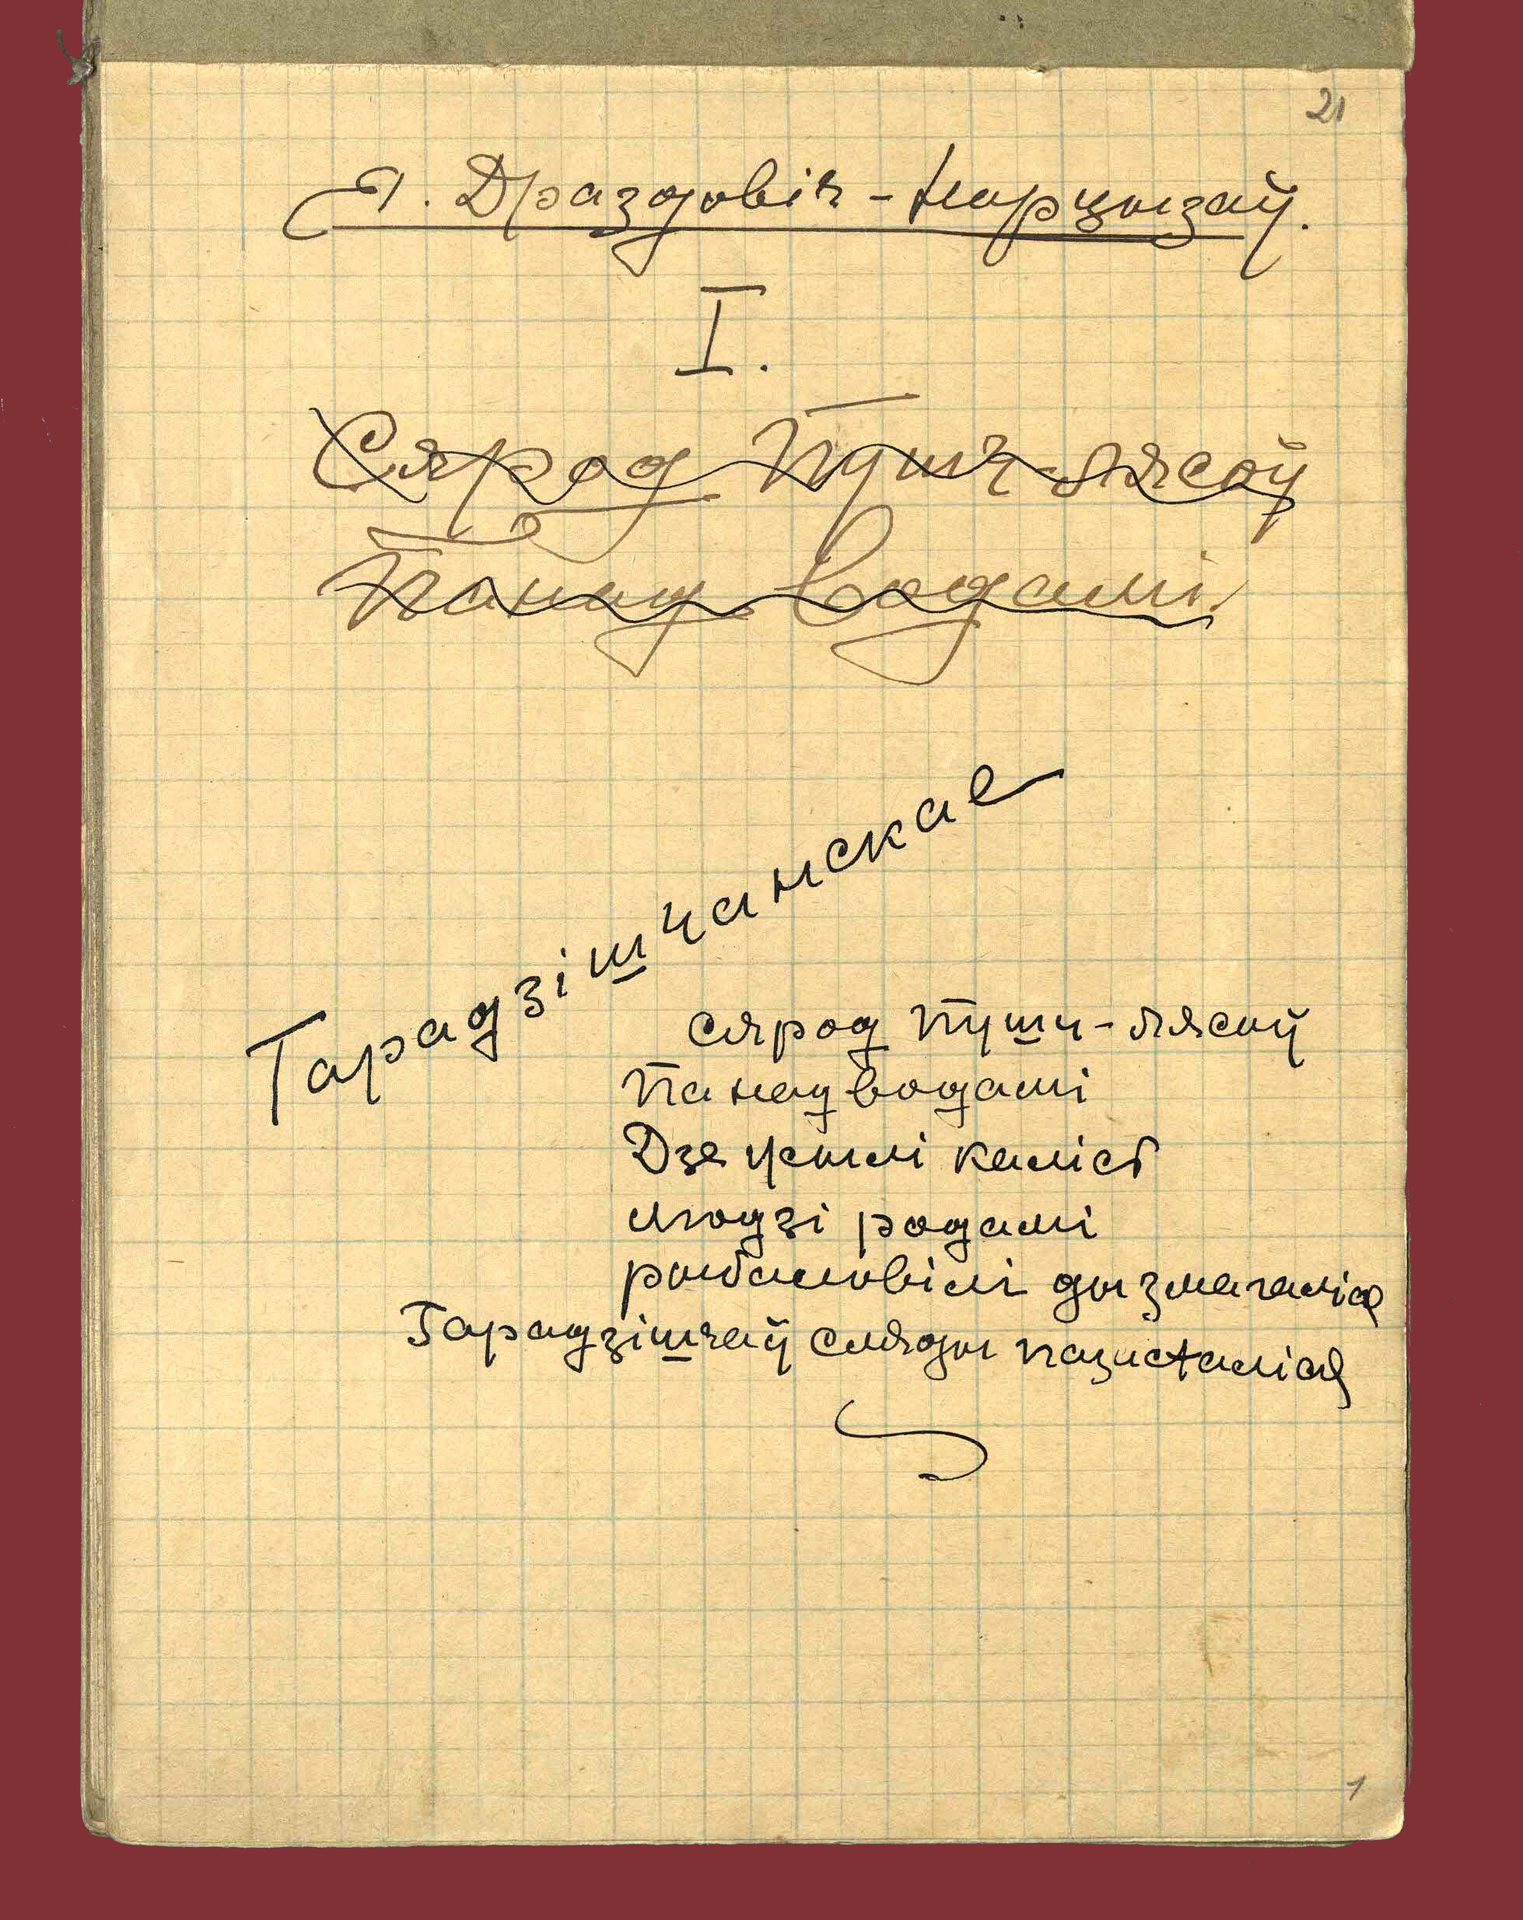 21
Я. Драздовіч-Нарцызаў.
I.
Сярод Пушч-лясоў
Панад водамі.
Гарадзішчанскае
Сярод Пушч-лясоў
Панад водамі
Дзе жылі каліст
людзі родамі
рыбаловілі ды змагаліся
Гарадзішчаў сляды пазасталіся
1